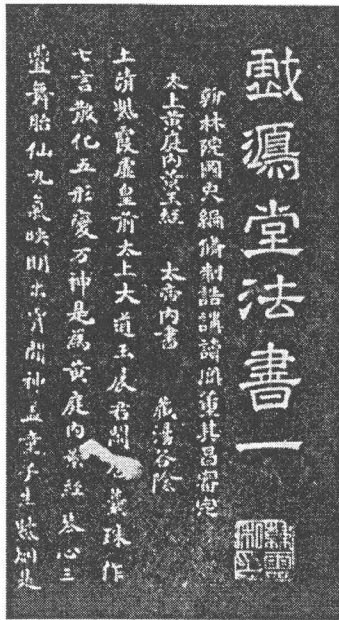 戲鴻堂法書一
翰林院國史編脩制誥講讀官董其昌審定
太上黃庭內景玉經 太帝內書 藏暘谷陰
上清紫霞虛皇前太上大道玉晨君閒居蕊珠作
七言散化五形變万神是為黃庭內景經琴心三
疊舞胎仙九氣映明出霄間神蓋童子生紫烟是